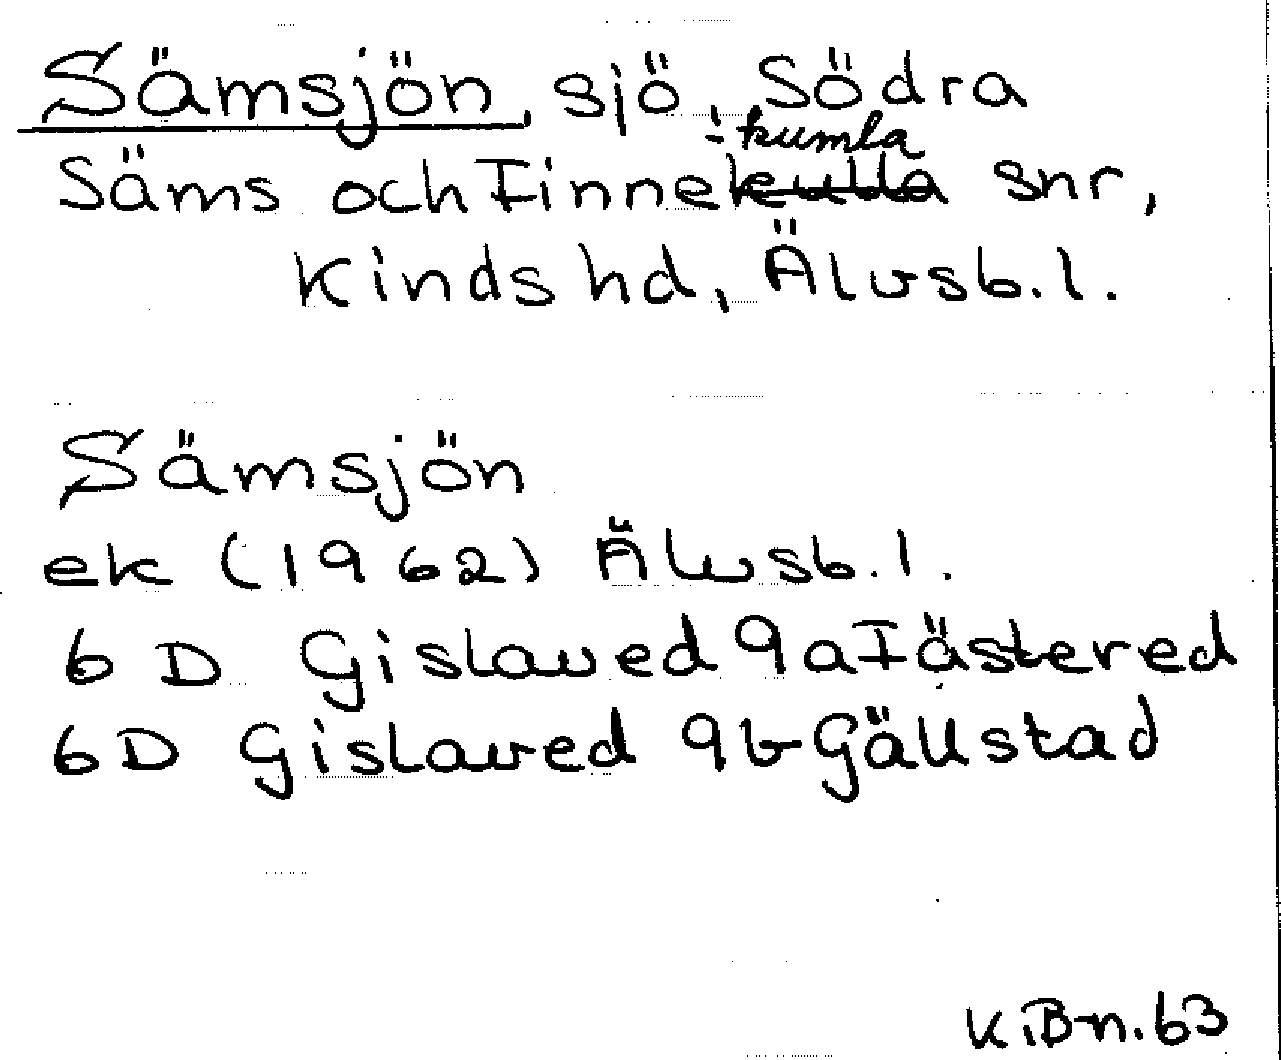 Sämsjön, sjö, Södra
-kumla
Säms och Finnekulla snr,
Kinds hd, Älvsb.l.
Sämsjön
ek (1962) Älvsb.l.
6 D Gislaved 9a Fästered
6D Gislaved 9b Gällstad
K.Bn.63